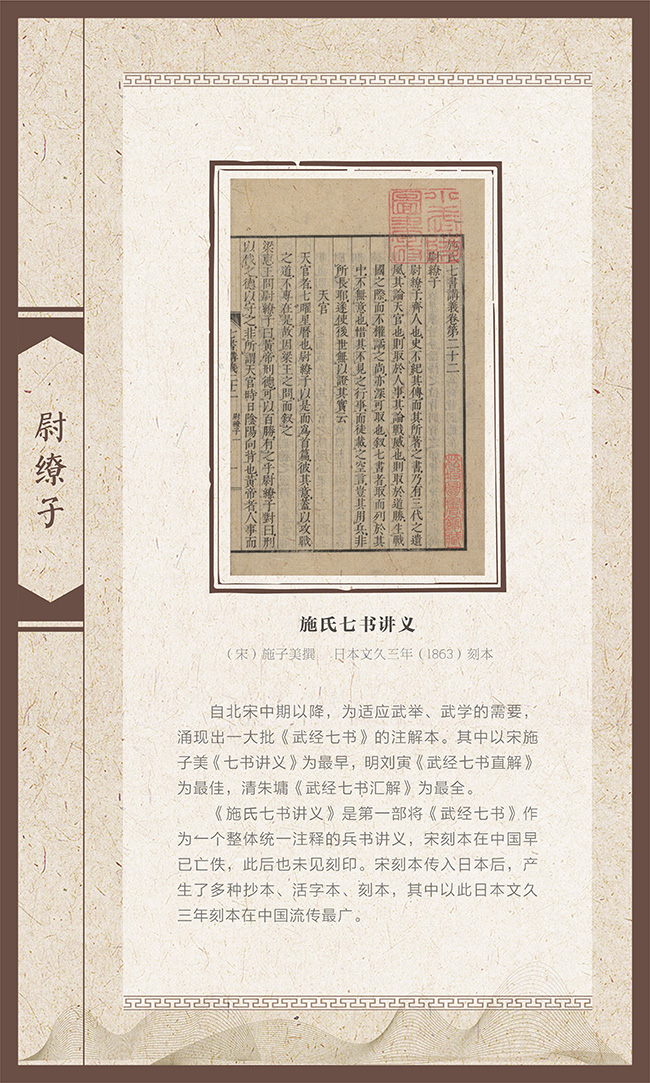 尉缭子
施氏七書講義卷第二十二
尉繚子
尉繚子齊人也史不紀其傳而其所著之書乃有三代之遺
風其論天官也則取於人事其論戰威也則取於道勝生戰
國之際而不權譎之尚亦深可取也叙七書者取而列於其
中不無意也惜其不見之行事而徒載之空言豈其用兵非
所長耶遂使後世無以證其實云
天官
天官者七曜星曆也尉繚子以是而爲首篇彼其意蓋以攻戰
之道不專在是故因梁王之問而叙之
梁惠王問尉繚子曰黃帝刑德可以百勝有之乎尉繚子對曰刑
以伐之德以守之非所謂天官時日陰陽向背也黃帝者人事而
尉繚子
施氏七书讲义
（宋）施子美撰 日本文久三年（1863）刻本
自北宋中期以降，为适应武举、武学的需要，
涌现出一大批《武经七书》的注解本。其中以宋施
子美《七书讲义》为最早，明刘寅《武经七书直解》
为最佳，清朱墉《武经七书汇解》为最全。
《施氏七书讲义》是第一部将《武经七书》作
为一个整体统一注释的兵书讲义，宋刻本在中国早
已亡佚，此后也未见刻印。宋刻本传入日本后，产
生了多种抄本、活字本、刻本，其中以此日本文久
三年刻本在中国流传最广。